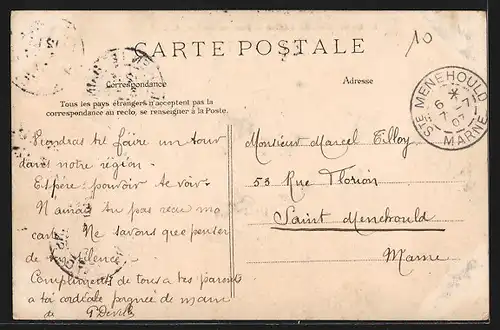 CARTE POSTALE
10
Correspondance
Adresse
Tous les pays étrangers n'acceptent pas la
correspondance au recto, se renseigner à la Poste.
STE MENEHOULD
6 * 7
7 07
MARNE
Viendras tu faire un tour
dans notre région.
Espère pouvoir te voir.
N'aurais tu pas reçu ma
carte. Ne savons que penser
de ton silence.
Compliments de tous à tes parents
a toi cordiale poignée de main
de
Monsieur Marcel Tilloy
53 Rue Florion
Saint Menehould
Marne